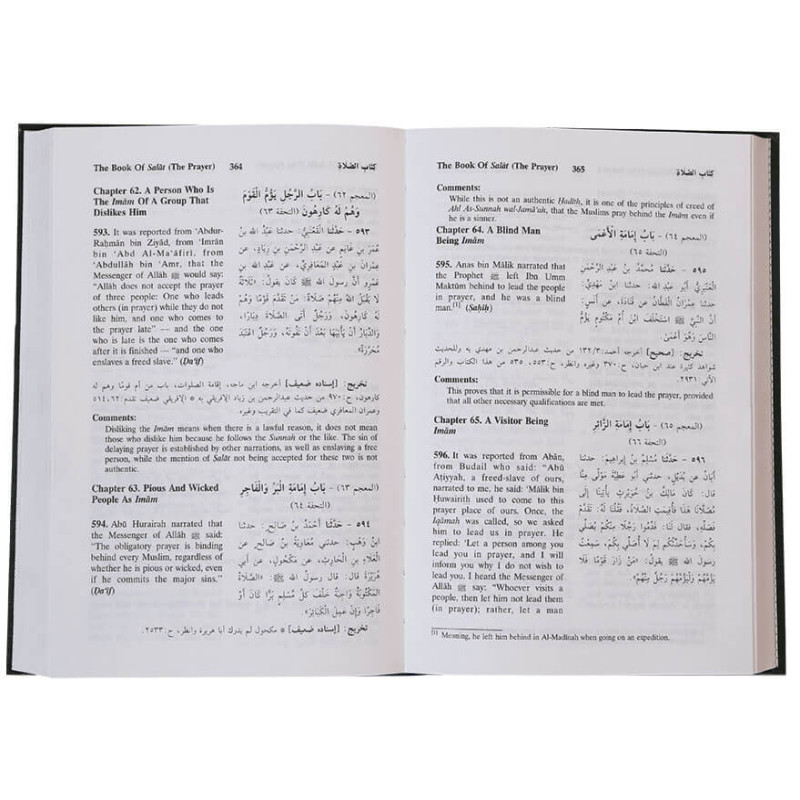 The Book Of Salāt (The Prayer) 364 كتاب الصلاة
Chapter 62. A Person Who Is
The Imām Of A Group That
Dislikes Him
(المعجم ٦٢) - بَابُ الرَّجُلِ يَؤُمُّ الْقَوْمَ
وَهُمْ لَهُ كَارِهُونَ (التحفة ٦٣)
593. It was reported from 'Abdur-
Raḥmān bin Ziyād, from 'Imrān
bin 'Abd Al-Ma'āfirī, from
'Abdullāh bin 'Amr, that the
Messenger of Allāh ﷺ would say:
"Allāh does not accept the prayer
of three people: One who leads
others (in prayer) while they do not
like him, and one who comes to
the prayer late" — and the one
who is late is the one who comes
after it is finished — "and one who
enslaves a freed slave." (Ḍa'īf)
٥٩٣ - حَدَّثَنا الْقَعْنَبِيُّ: حَدَّثَنَا عَبْدُ الله بنُ
عُمَرَ بنِ غَانِمٍ عن عَبْدِ الرَّحْمَنِ بنِ زِيَادٍ، عن
عِمْرَانَ بنِ عَبْدٍ المَعَافِرِيِّ، عن عَبْدِ الله بنِ
عَمْرٍو أنَّ رسولَ الله ﷺ كَانَ يقولُ: «ثَلَاثَةٌ
لَا يَقْبَلُ الله مِنْهُمْ صَلَاةً: مَنْ تَقَدَّمَ قَوْمًا وَهُمْ
لَهُ كَارِهُونَ، وَرَجُلٌ أَتَى الصَّلَاةَ دِبَارًا،
وَالدِّبَارُ أنْ يَأْتِيَهَا بَعْدَ أنْ تَفُوتَهُ، وَرَجُلٌ اعْتَبَدَ
مُحَرَّرَهُ».
تخريج: [إسناده ضعيف] أخرجه ابن ماجه، إقامة الصلوات، باب من أم قومًا وهم له
كارهون، ح:٩٧٠ من حديث عبدالرحمن بن زياد الإفريقي به * الإفريقي ضعيف تقدم:٦٢،٥١٤
وعمران المعافري ضعيف كما في التقريب وغيره
Comments:
Disliking the Imām means when there is a lawful reason, it does not mean
those who dislike him because he follows the Sunnah or the like. The sin of
delaying prayer is established by other narrations, as well as enslaving a free
person, while the mention of Salāt not being accepted for these two is not
authentic.
Chapter 63. Pious And Wicked
People As Imām
(المعجم ٦٣) - بَابُ إِمَامَةِ الْبَرِّ وَالْفَاجِرِ
(التحفة ٦٤)
594. Abū Hurairah narrated that
the Messenger of Allāh ﷺ said:
"The obligatory prayer is binding
behind every Muslim, regardless of
whether he is pious or wicked, even
if he commits the major sins."
(Ḍa'īf)
٥٩٤ - حَدَّثَنا أَحْمَدُ بنُ صَالحٍ: حَدَّثَنا
ابنُ وَهْبٍ: حدثني مُعَاوِيَةُ بنُ صَالحٍ عن
الْعَلَاءِ بنِ الْحَارِثِ، عن مَكْحُولٍ، عن أبي
هُرَيْرَةَ قال: قال رسولُ الله ﷺ: «الصَّلَاةُ
المَكْتُوبَةُ وَاجِبَةٌ خَلْفَ كلِّ مُسْلِمٍ بَرًّا كَانَ أَوْ
فَاجِرًا وَإِنْ عَمِلَ الْكَبَائِرَ».
تخريج: [إسناده ضعيف] * مكحول لم يدرك أبا هريرة وانظر، ح:٢٥٣٣.
The Book Of Salāt (The Prayer) 365 كتاب الصلاة
Comments:
While this is not an authentic Ḥadīth, it is one of the principles of creed of
Ahl As-Sunnah wal-Jamā'ah, that the Muslims pray behind the Imām even if
he is a sinner.
Chapter 64. A Blind Man
Being Imām
(المعجم ٦٤) - بَابُ إِمَامَةِ الْأَعْمَى
(التحفة ٦٥)
595. Anas bin Mālik narrated that
the Prophet ﷺ left Ibn Umm
Maktūm behind to lead the people
in prayer, and he was a blind
man.[1] (Saḥīḥ)
٥٩٥ - حَدَّثَنا مُحَمَّدُ بنُ عَبْدِ الرَّحْمَنِ
الْعَنْبَرِيُّ أبو عبد الله: حدثنا ابنُ مَهْدِيٍّ:
حدثنا عِمْرَانُ الْقَطَّانُ عن قَتَادَةَ، عن أَنَسٍ:
أنَّ النَّبيَّ ﷺ اسْتَخْلَفَ ابنَ أُمِّ مَكْتُومٍ يَؤُمُّ
النَّاسَ وَهُوَ أَعْمَى.
تخريج: [صحيح] أخرجه أحمد:٣/ ١٣٢ من حديث عبدالرحمن بن مهدي به وللحديث
شواهد كثيرة عند ابن حبان، ح:٣٧٠ وغيره وانظر، ح:٥٥٣، ٥٣٥ من هذا الكتاب والرقم
الآتي ٢٩٣١
Comments:
This proves that it is permissible for a blind man to lead the prayer, provided
that all other necessary qualifications are met.
Chapter 65. A Visitor Being
Imām
(المعجم ٦٥) - بَابُ إِمَامَةِ الزَّائِرِ
(التحفة ٦٦)
596. It was reported from Abān,
from Budail who said: "Abū
Aṭiyyah, a freed-slave of ours,
narrated to me, he said: 'Mālik bin
Ḥuwairith used to come to this
prayer place of ours. Once, the
Iqāmah was called, so we asked
him to lead us in prayer. He
replied: 'Let a person among you
lead you in prayer, and I will
inform you why I do not wish to
lead you, I heard the Messenger of
Allāh ﷺ say: "Whoever visits a
people, then let him not lead them
(in prayer); rather, let a man
٥٩٦ - حَدَّثَنا مُسْلِمُ بنُ إِبراهِيمَ: حَدَّثَنا
أَبَانُ عن بُدَيْلٍ، حدثني أَبُو عَطِيَّةَ مَوْلًى مِنَّا
قال: كَانَ مَالِكُ بنُ حُوَيْرِثٍ يَأْتِينَا إِلَى
مُصَلَّانَا هَذَا فَأُقِيمَتِ الصَّلَاةُ، فَقُلْنَا لَهُ: تَقَدَّمْ
فَصَلِّهِ، فقال لَنَا: قَدِّمُوا رَجُلًا مِنْكُم يُصَلِّي
بِكُمْ، وَسَأُحَدِّثُكُم لِمَ لَا أُصَلِّي بِكُم، سَمِعْتُ
رسولَ الله ﷺ يقولُ: «مَنْ زَارَ قَوْمًا فَلَا
يَؤُمَّهُمْ وَلْيَؤُمَّهُمْ رَجُلٌ مِنْهُمْ».
[1] Meaning, he left him behind in Al-Madīnah when going on an expedition.